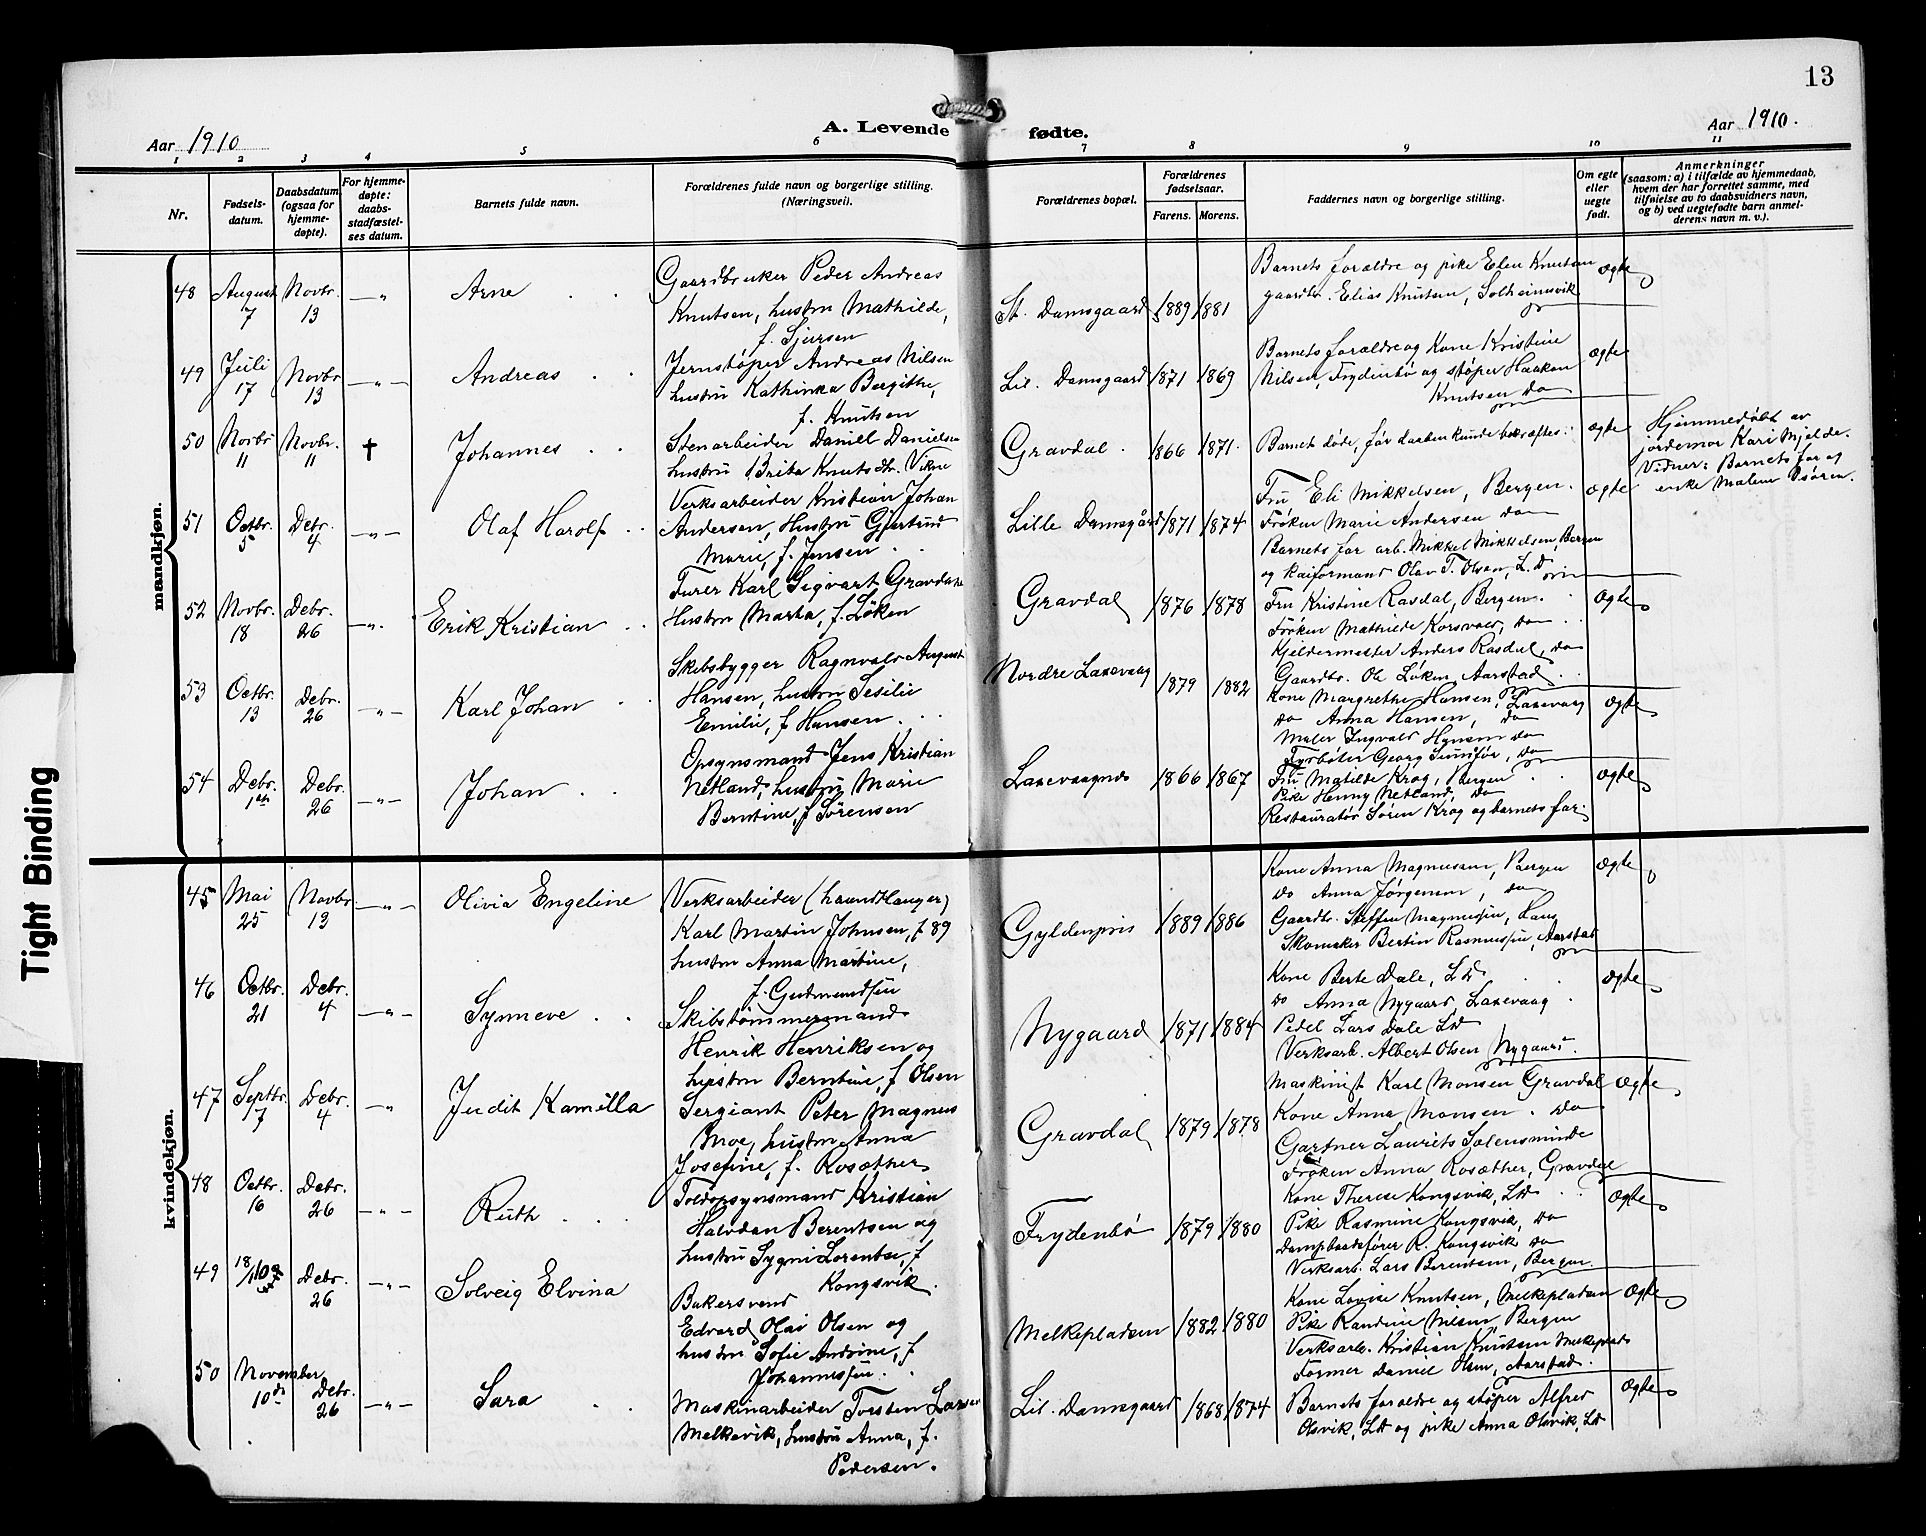 13
Aar 1910
A. Levende
fødte.
Aar 1910.
1 2 3 4 5 6 7 8 9 10 11
Nr.
Fødsels-
datum.
Daabsdatum
(ogsaa for
hjemme-
døpte).
For hjemme-
døpte:
daabs-
stadfæstel-
ses datum.
Barnets fulde navn.
Forældrenes fulde navn og borgerlige stilling.
(Næringsvei).
Forældrenes bopæl.
Forældrenes
fødselsaar.
Farens.
Morens.
Faddernes navn og borgerlige stilling.
Om egte
eller
uegte
født.
Anmerkninger
(saasom: a) i tilfælde av hjemmedaab,
hvem der har forrettet samme, med
tilføielse av to daabsvidners navn,
og b) ved uegtefødte barn anmel-
derens navn m. v.).
mandkjøn.
48
August
7
Novbr.
13
—"
Arne
Gaardbruker Peder Andreas
Knutsen, hustru Mathilde,
f. Sjursen
St. Damsgaard
1889
1881
Barnets forældre og pike Elen Knutsen
gaardbr. Elias Knutsen, Solheimsvik
ægte
49
Juli
17
Novbr
13
—"—
Andreas
Jernstøper Andreas Nilsen
hustru Kathinka Bergitte,
f. Knutsen
Lil. Damsgaard
1871
1869
Barnets forældre og Kone Kristine
Nilsen, Frydenbø og støper Haakon
Knutsen do
ægte
50
Novbr
11
Novbr.
11
†
Johannes
Stenarbeider Daniel Danielsen
hustru Brita Knutsdtr. Vikne
Gravdal.
1866
1871.
Barnet døde, før daaben kunde bekræftes.
ægte
Hjemmedøbt av
jordemor Kari Mjelde.
Vidner: Barnets far og
enke Malene
51
Octbr.
5
Debr.
4
—"—
Olaf Harolf
Verksarbeider Kristian Johan
Andersen, Hustru Gjertrud
Marie, f. Jensen
Lille Damsgård
1871
1874
Fru Eli Mikkelsen, Bergen.
Frøken Marie Andersen do
Barnets far arb. Mikkel Mikkelsen, Bergen
og kaiformand Olav T. Olsen, L.D
ægte
52
Novbr.
18
Debr.
26
—".
Erik Kristian
Furer Karl Sigvart Gravdal
Hustru Marta, f. Løken
Gravdal
1876
1878
Fru Kristine Rasdal, Bergen.
Frøken Mathilde Korsvold, do
Kjeldermester Anders Rasdal, do
Gaardbr. Ole Løken, Aarstad
ægte
53
Octbr.
13
Debr.
26
—"—
Karl Johan
Skibsbygger Ragnvald August
Hansen, hustru Sesilie
Emilie, f Hansen.
Nordre Laxevaag
1879
1882
Kone Margrethe Hansen, Laxevaag
do Anna Hansen, do
Maler Ingvald Hansen do
Fyrbøter Georg Sundfør, do
ægte
54
Debr.
1ste
Debr.
26
—"—
Johan
Opsynsmand Jens Kristian
Netland, hustru Marie
Berntine, f Sørensen
Laxevaagnes
1866
1867
Fru Matilde Krog, Bergen
Pike Henny Netland, do
Restauratør Søren Krog og barnets far.
ægte
kvindekjøn.
45
Mai
25
Novbr
13
—"—
Olivia Engeline
Verksarbeider (haandlanger)
Karl Martin Johnsen, f 89
hustru Anna Martine,
f. Gudmundsen
Gyldenpris
1889
1886
Kone Anna Magnussen, Bergen
do Anna Jørgensen, do
Gaardbr. Steffen Magnussen, Haug
Skomaker Bertin Rasmussen, Aarstad
ægte
46
Octbr.
21
Debr.
4
—"—
Synneve
Skibstømmermand
Henrik Henriksen og
hustru Berntine, f Olsen
Nygaard
1871
1884
Kone Berte Dale, Ld
do Anna Nygaard, Laxevaag
Pedel Lars Dale Ld
Verksarb. Albert Olsen Nygaard.
ægte
47
Septbr.
7
Debr.
4
—"
Judit Kamilla
Sergiant Peter Magnus
Moe, hustru Anna
Josefine, f. Rosæther
Gravdal
1879
1878
Maskinist Karl Monsen Gravdal
Kone Anna Monsen. do
Gartner Laurits Solensminde
Frøken Anna Rosæther, Gravdal
ægte
48
Octbr.
16
Debr.
26
—"—
Ruth
Toldopsynsmand Kristian
Halvdan Berentsen og
hustru Sygni Lorentse, f
Kongsvik.
Frydenbø
1879
1880
Kone Therese Kongsvik, Ld
Pike Rasmine Kongsvik, do
Dampbaadsfører R. Kongsvik do
Verksarb. Lars Berentsen, Bergen
ægte
49
18/10 09
Debr.
26
—"—
Solveig Elvina
Bakersvend
Edvard Olai Olsen og
hustru Sofie Andrine, f
Johannessen.
Melkepladsen
1882
1880
Kone Lovise Knutsen, Melkepladsen
Pike Randine Nilsen, Bergen
Verksarb. Kristian Knutsen Melkeplads
Former Daniel Olsen, Aarstad
ægte
50
November
10de
Debr.
26
—"—
Sara
Maskinarbeider Torsten Larsen
Melkevik, hustru Anna, f.
Pedersen.
Lil. Damsgaard
1868
1874
Barnets forældre og støper Alfred
Olsvik, Ld og pike Anna Olsvik, Ld
ægte
Tight Binding